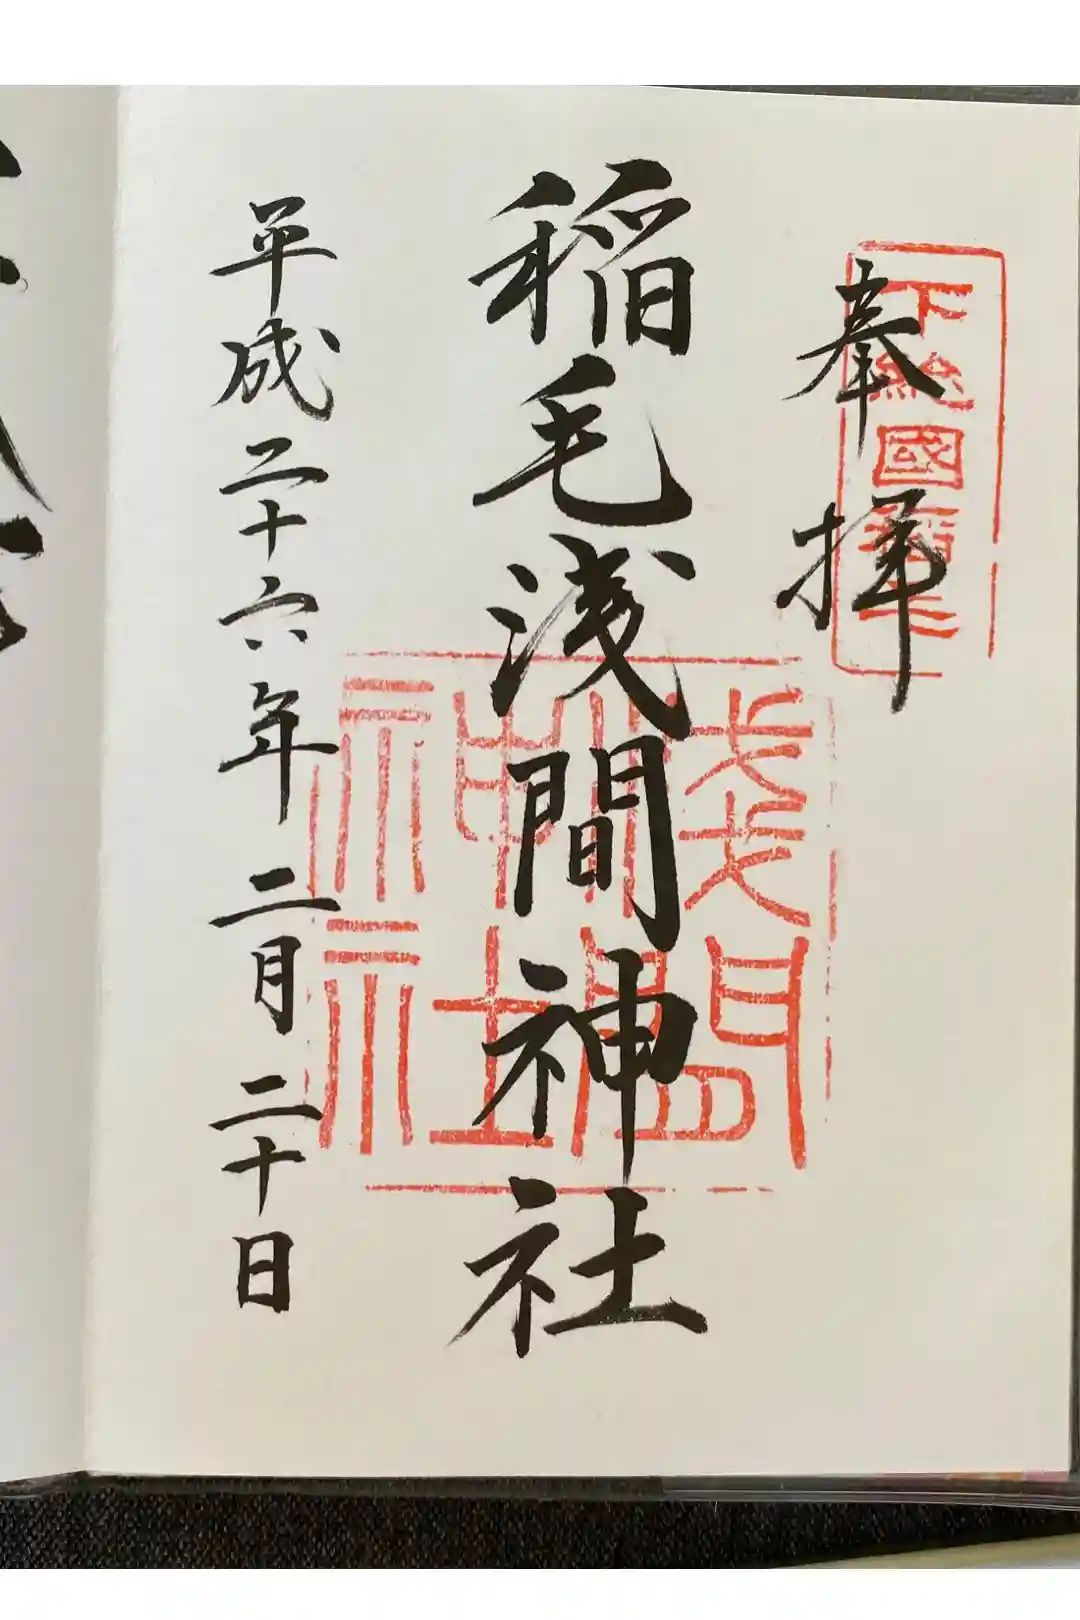 奉拝
下総國稲毛
稲毛浅間神社
浅間神社
平成二十六年 二月 二十日